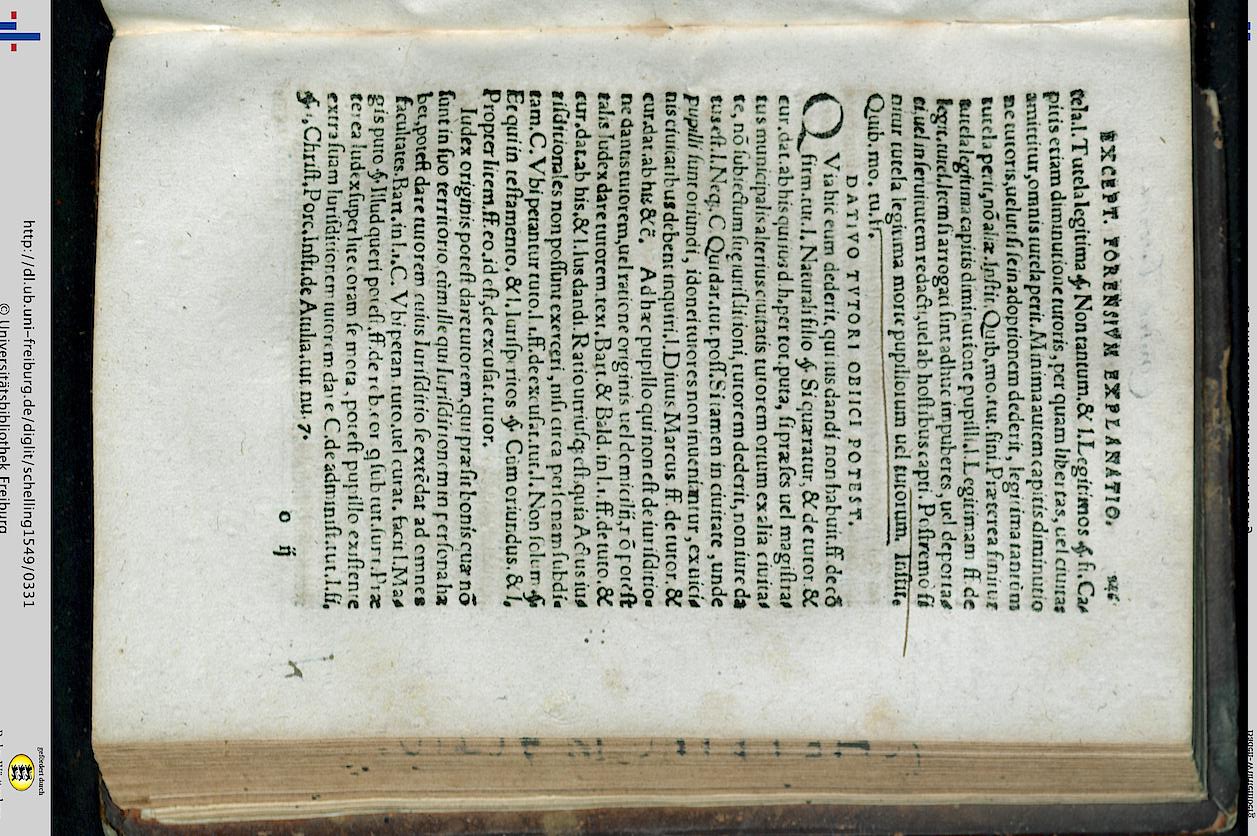 EXCEPT. FORENSIVM EXPLANATIO.
tela.l. Tutela legitima § Non tantum, & l. Legitimos § fi. Ca/
pitis etiam diminutione tutoris, per quam libertas, uel ciuitas
amittitur, omnis tutela perit. Minima autem capitis diminutio
ne tutoris, uelut si se in adoptionem dederit, legitima tantum
tutela perit, nõ aliæ. Instit. Quib. mo. tut. fini. Præterea finitur
tutela legitima capitis diminutione pupilli. l. Legitimam ff. de
legit. tutel. Item si arrogati sint adhuc impuberes, uel deporta/
ti, uel in seruitutem redacti, uel ab hostibus capti. Postremo fi
nitur tutela legitima morte pupillorum uel tutorum. Institu.
Quib. mo. tu. fi.
DATIVO TVTORI OBIICI POTEST.
QVia hic eum dederit, qui ius dandi non habuit. ff. de cõ
firm. tut. l. Naturali filio § Si quæratur, & de tutor. &
cur. dat. ab his qui ius d. h. per tot. puta, si præses uel magistra/
tus municipalis alterius ciuitatis tutorem orium ex alia ciuita/
te, nõ subiectum suę iurisditioni, tutorem dederit, non iure da
tus est. l. Neq. C Qui dar. tut. poss. Si tamen in ciuitate, unde
pupilli sunt oriundi, idonei tutores non inueniantur, ex uici/
nis ciuitatibus debent inquiri. l. Diuus Marcus ff. de tutor. &
cur. dat. ab his &c̃. Ad hæc pupillo qui non est de iurisditio/
ne dantis tutorem, uel ratione originis uel domicilij, nõ potest
talis Iudex dare tutorem. tex. Bart & Bald. in l. 1. ff. de tuto. &
cur. dat. ab his. & l. Ius dandi. Ratio utriusq́ est: quia Actus iu/
risditionales non possunt exerceri, nisi circa personam subdi/
tam. C. Vbi petantur tuto. l. 1. ff. de excusat. tut. l. Non solum §
Et qui in testamento. & l. Iurisperitos § Cum oriundus. & l.
Propter litem. ff. eo. id est, de excusat. tutor.
Iudex originis potest dare tutorem, qui præsit bonis quæ nõ
sunt in suo territorio, cùm ille qui Iurisditionem in persona ha
bet, potest dare tutorem cuius Iurisditio se extẽdat ad omnes
facultates. Bart. in l. 1. C. Vbi petan. tuto. uel curat. facit l. Ma/
gis puto § Illud queri potest. ff. de reb. eor q sub tut. sun. Præ
terea Iudex super lite coram se mota, potest pupillo existente
extra suam Iurisditionem tutorem dare C. de administ. tut. l. si.
§ 1. Christ. Porc. Insti. de Attilia. tut. nu. 7.
o ij
http://dl.ub.uni-freiburg.de/diglit/schelling1549/0331
© Universitätsbibliothek Freiburg
gefördert durch